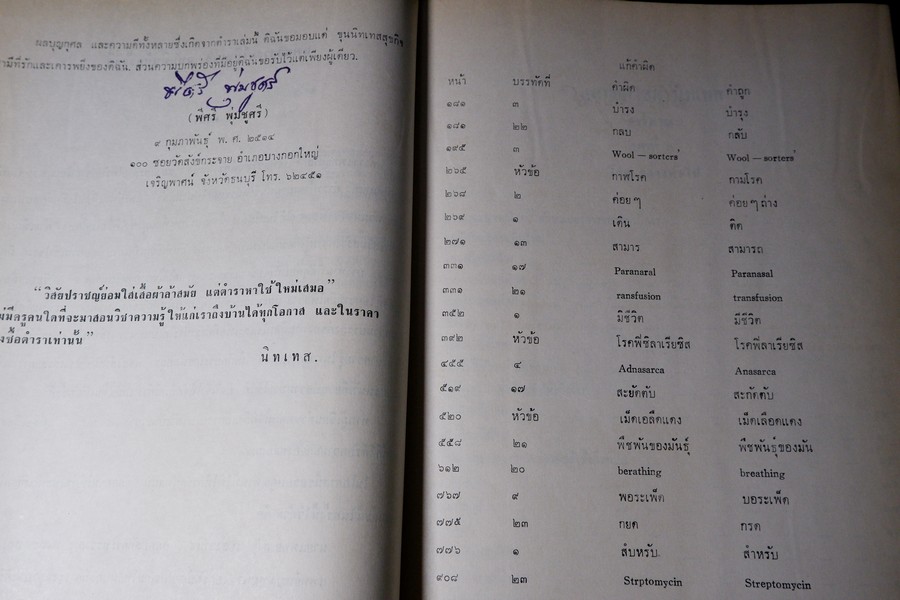 ผลบุญกุศล และความดีทั้งหลายซึ่งเกิดจากตำราเล่มนี้ ดิฉันขอมอบแด่ ขุนนิทเทสสุขกิจ
ามีที่รักและเคารพยิ่งของดิฉัน. ส่วนความบกพร่องที่มีอยู่ดิฉันขอรับไว้แต่เพียงผู้เดียว.
พิศรี พุ่มชูศรี
(พิศรี พุ่มชูศรี)
๙ กุมภาพันธุ์ พ. ศ. ๒๕๑๔
๑๐๐ ซอยวัดสังข์กระจาย อำเภอบางกอกใหญ่
เจริญพาศน์ จังหวัดธนบุรี โทร. ๖๒๔๕๑
“วิสัยปราชญ์ย่อมใส่เสื้อผ้าล้าสมัย แต่ตำราหาใช้ใหม่เสมอ”
ม่มีครูคนใดที่จะมาสอนวิชาความรู้ให้แก่เราถึงบ้านได้ทุกโอกาส และในราคา
งซื้อตำราเท่านั้น”
นิทเทส.
แก้คำผิด
หน้า บรรทัดที่ คำผิด คำถูก
๑๘๑ ๓ บำรง บำรุง
๑๘๑ ๒๒ กลบ กลับ
๑๙๕ ๓ Wool — sorters' Wool — sorters'
๒๖๕ หัวข้อ กาฬโรค กามโรค
๒๖๘ ๒ ค่อยๆ ค่อยๆ ถ่าง
๒๖๙ ๑ เดิน ติด
๒๗๑ ๑๓ สามาร สามารถ
๓๓๑ ๑๗ Paranaral Paranasal
๓๓๑ ๒๑ ransfusion transfusion
๓๕๒ ๑ มิชีวิต มีชีวิต
๓๙๒ หัวข้อ โรคฟิซิลาเรียซิส โรคฟิลาเรียซิส
๔๕๕ ๔ Adnasarca Anasarca
๕๑๙ ๑๗ สะยัดดับ สะกัดดับ
๕๒๐ หัวข้อ เม็ดเอลืดแดง เม็ดเลือดแดง
๕๕๘ ๒๑ พืชพันของมันธุ์ พืชพันธุ์ของมัน
๖๑๒ ๒๐ berathing breathing
๗๖๗ ๙ พอระเพ็ด บอระเพ็ด
๗๗๕ ๒๓ กยด กรด
๗๗๖ ๑ สํบหรับ สำหรับ
๙๐๘ ๒๓ Strptomycin Streptomycin